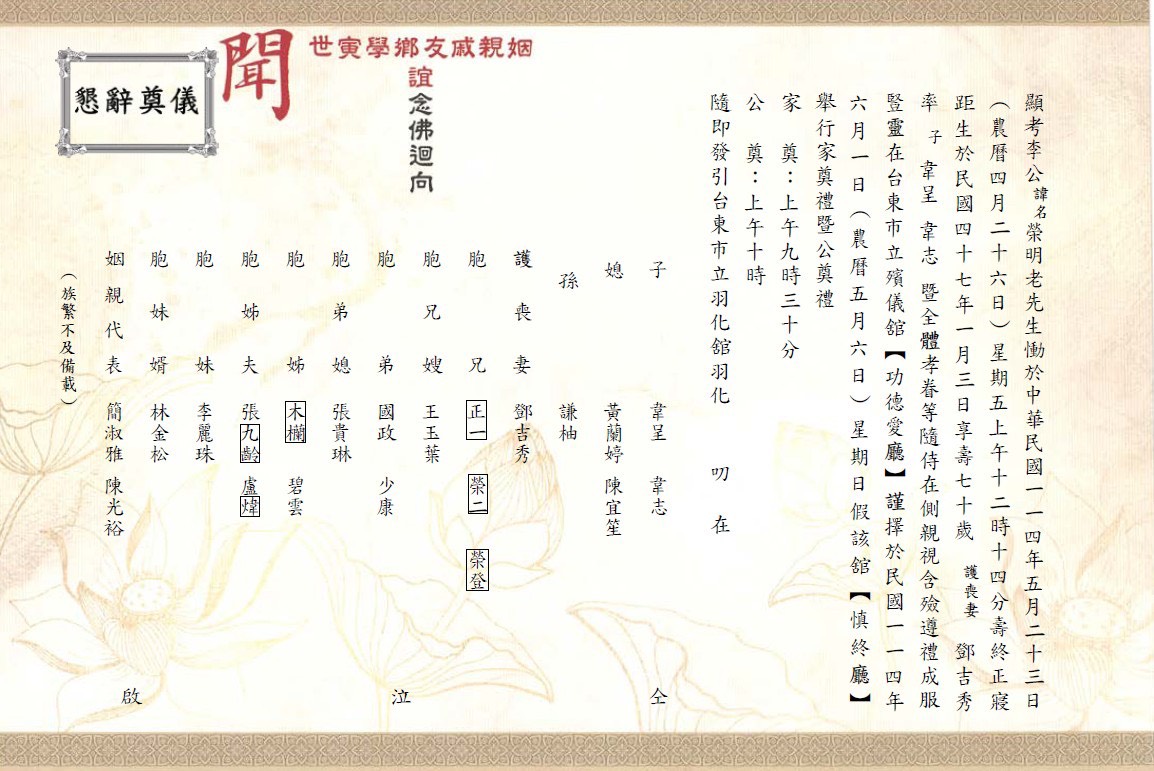 顯考李公諱名榮明老先生慟於中華民國一一四年五月二十三日
（農曆四月二十六日）星期五上午十二時十四分壽終正寢
距生於民國四十七年一月三日享壽七十歲 護喪妻 鄧吉秀
率 子 韋呈 韋志 暨全體孝眷等隨侍在側親視含殮遵禮成服
豎靈在台東市立殯儀舘【功德愛廳】謹擇於民國一一四年
六月一日（農曆五月六日）星期日假該舘【慎終廳】
舉行家奠禮暨公奠禮
家 奠：上午九時三十分
公 奠：上午十時
隨即發引台東市立羽化舘羽化 叨 在
姻親戚友鄉學寅世
誼念佛迴向
聞
懇辭奠儀
子 韋呈 韋志 仝
媳 黃蘭婷 陳宜笙
孫 謙柚
護喪妻 鄧吉秀
胞兄 正一 榮二 榮登
胞兄嫂 王玉葉
胞弟 國政 少康 泣
胞弟媳 張貴琳
胞姊 木欄 碧雲
胞姊夫 張九齡 盧煒
胞妹 李麗珠
胞妹婿 林金松
姻親代表 簡淑雅 陳光裕 啟
（族繁不及備載）